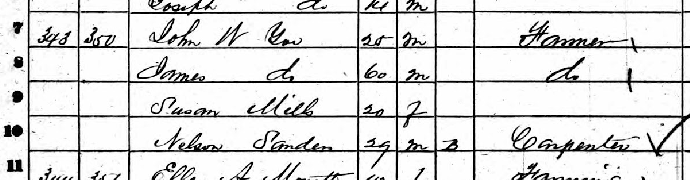 Joseph do 14 m
7 343 350 John W Yoe 25 m Farmer
8 James do 60 m do
9 Susan Mills 20 f
10 Nelson Sanden 29 m B Carpenter
11 Ella A